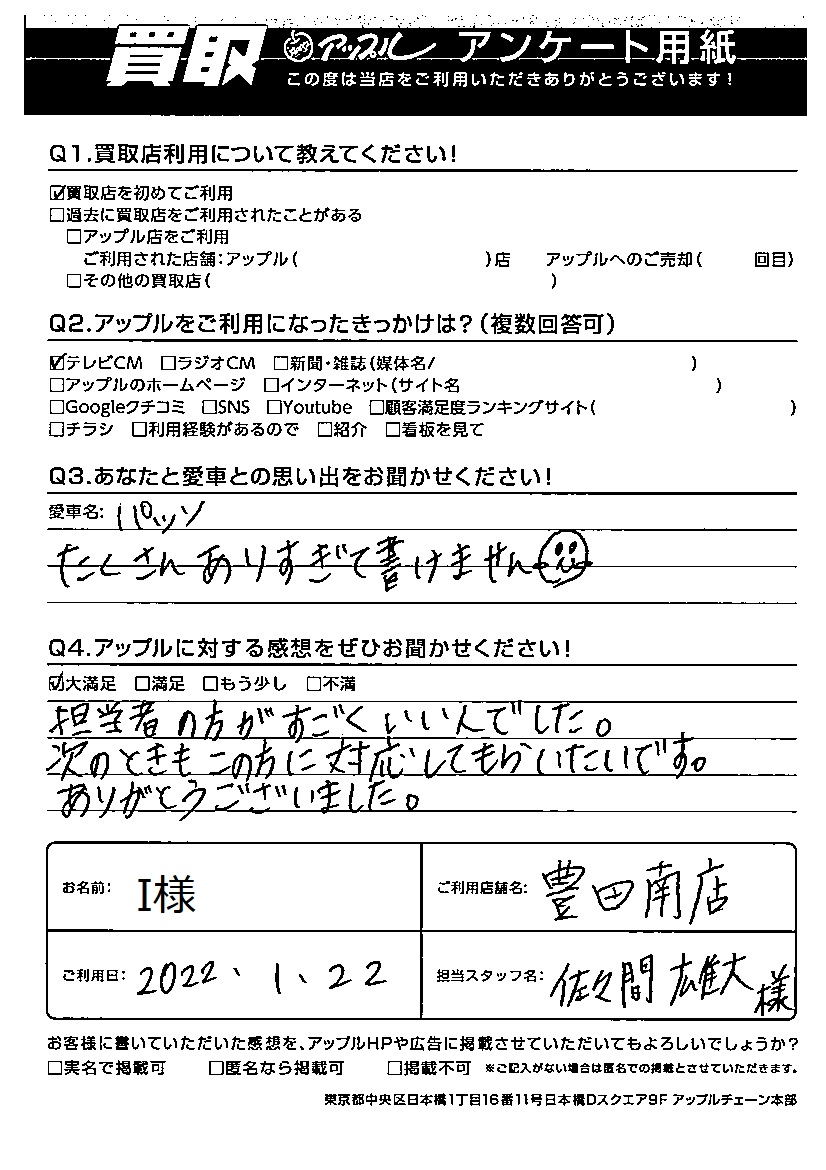 買取 アップル アンケート用紙
この度は当店をご利用いただきありがとうございます!
Q1.買取店利用について教えてください!
☑買取店を初めてご利用
□過去に買取店をご利用されたことがある
□アップル店をご利用
ご利用された店舗:アップル( )店 アップルへのご売却( 回目)
□その他の買取店( )
Q2.アップルをご利用になったきっかけは?(複数回答可)
☑テレビCM □ラジオCM □新聞・雑誌(媒体名/ )
□アップルのホームページ □インターネット(サイト名 )
□Googleクチコミ □SNS □Youtube □顧客満足度ランキングサイト( )
□チラシ □利用経験があるので □紹介 □看板を見て
Q3.あなたと愛車との思い出をお聞かせください!
愛車名: パッソ
たくさんありすぎて書けません
Q4.アップルに対する感想をぜひお聞かせください!
☑大満足 □満足 □もう少し □不満
担当者の方がすごくいい人でした。
次のときもこの方に対応してもらいたいです。
ありがとうございました。
お名前: I様
ご利用店舗名: 豊田南店
ご利用日: 2022、1、22
担当スタッフ名: 佐久間 雄大 様
お客様に書いていただいた感想を、アップルHPや広告に掲載させていただいてもよろしいでしょうか?
□実名で掲載可 □匿名なら掲載可 □掲載不可 ※ご記入がない場合は匿名での掲載とさせていただきます。
東京都中央区日本橋1丁目16番11号日本橋Dスクエア9F アップルチェーン本部